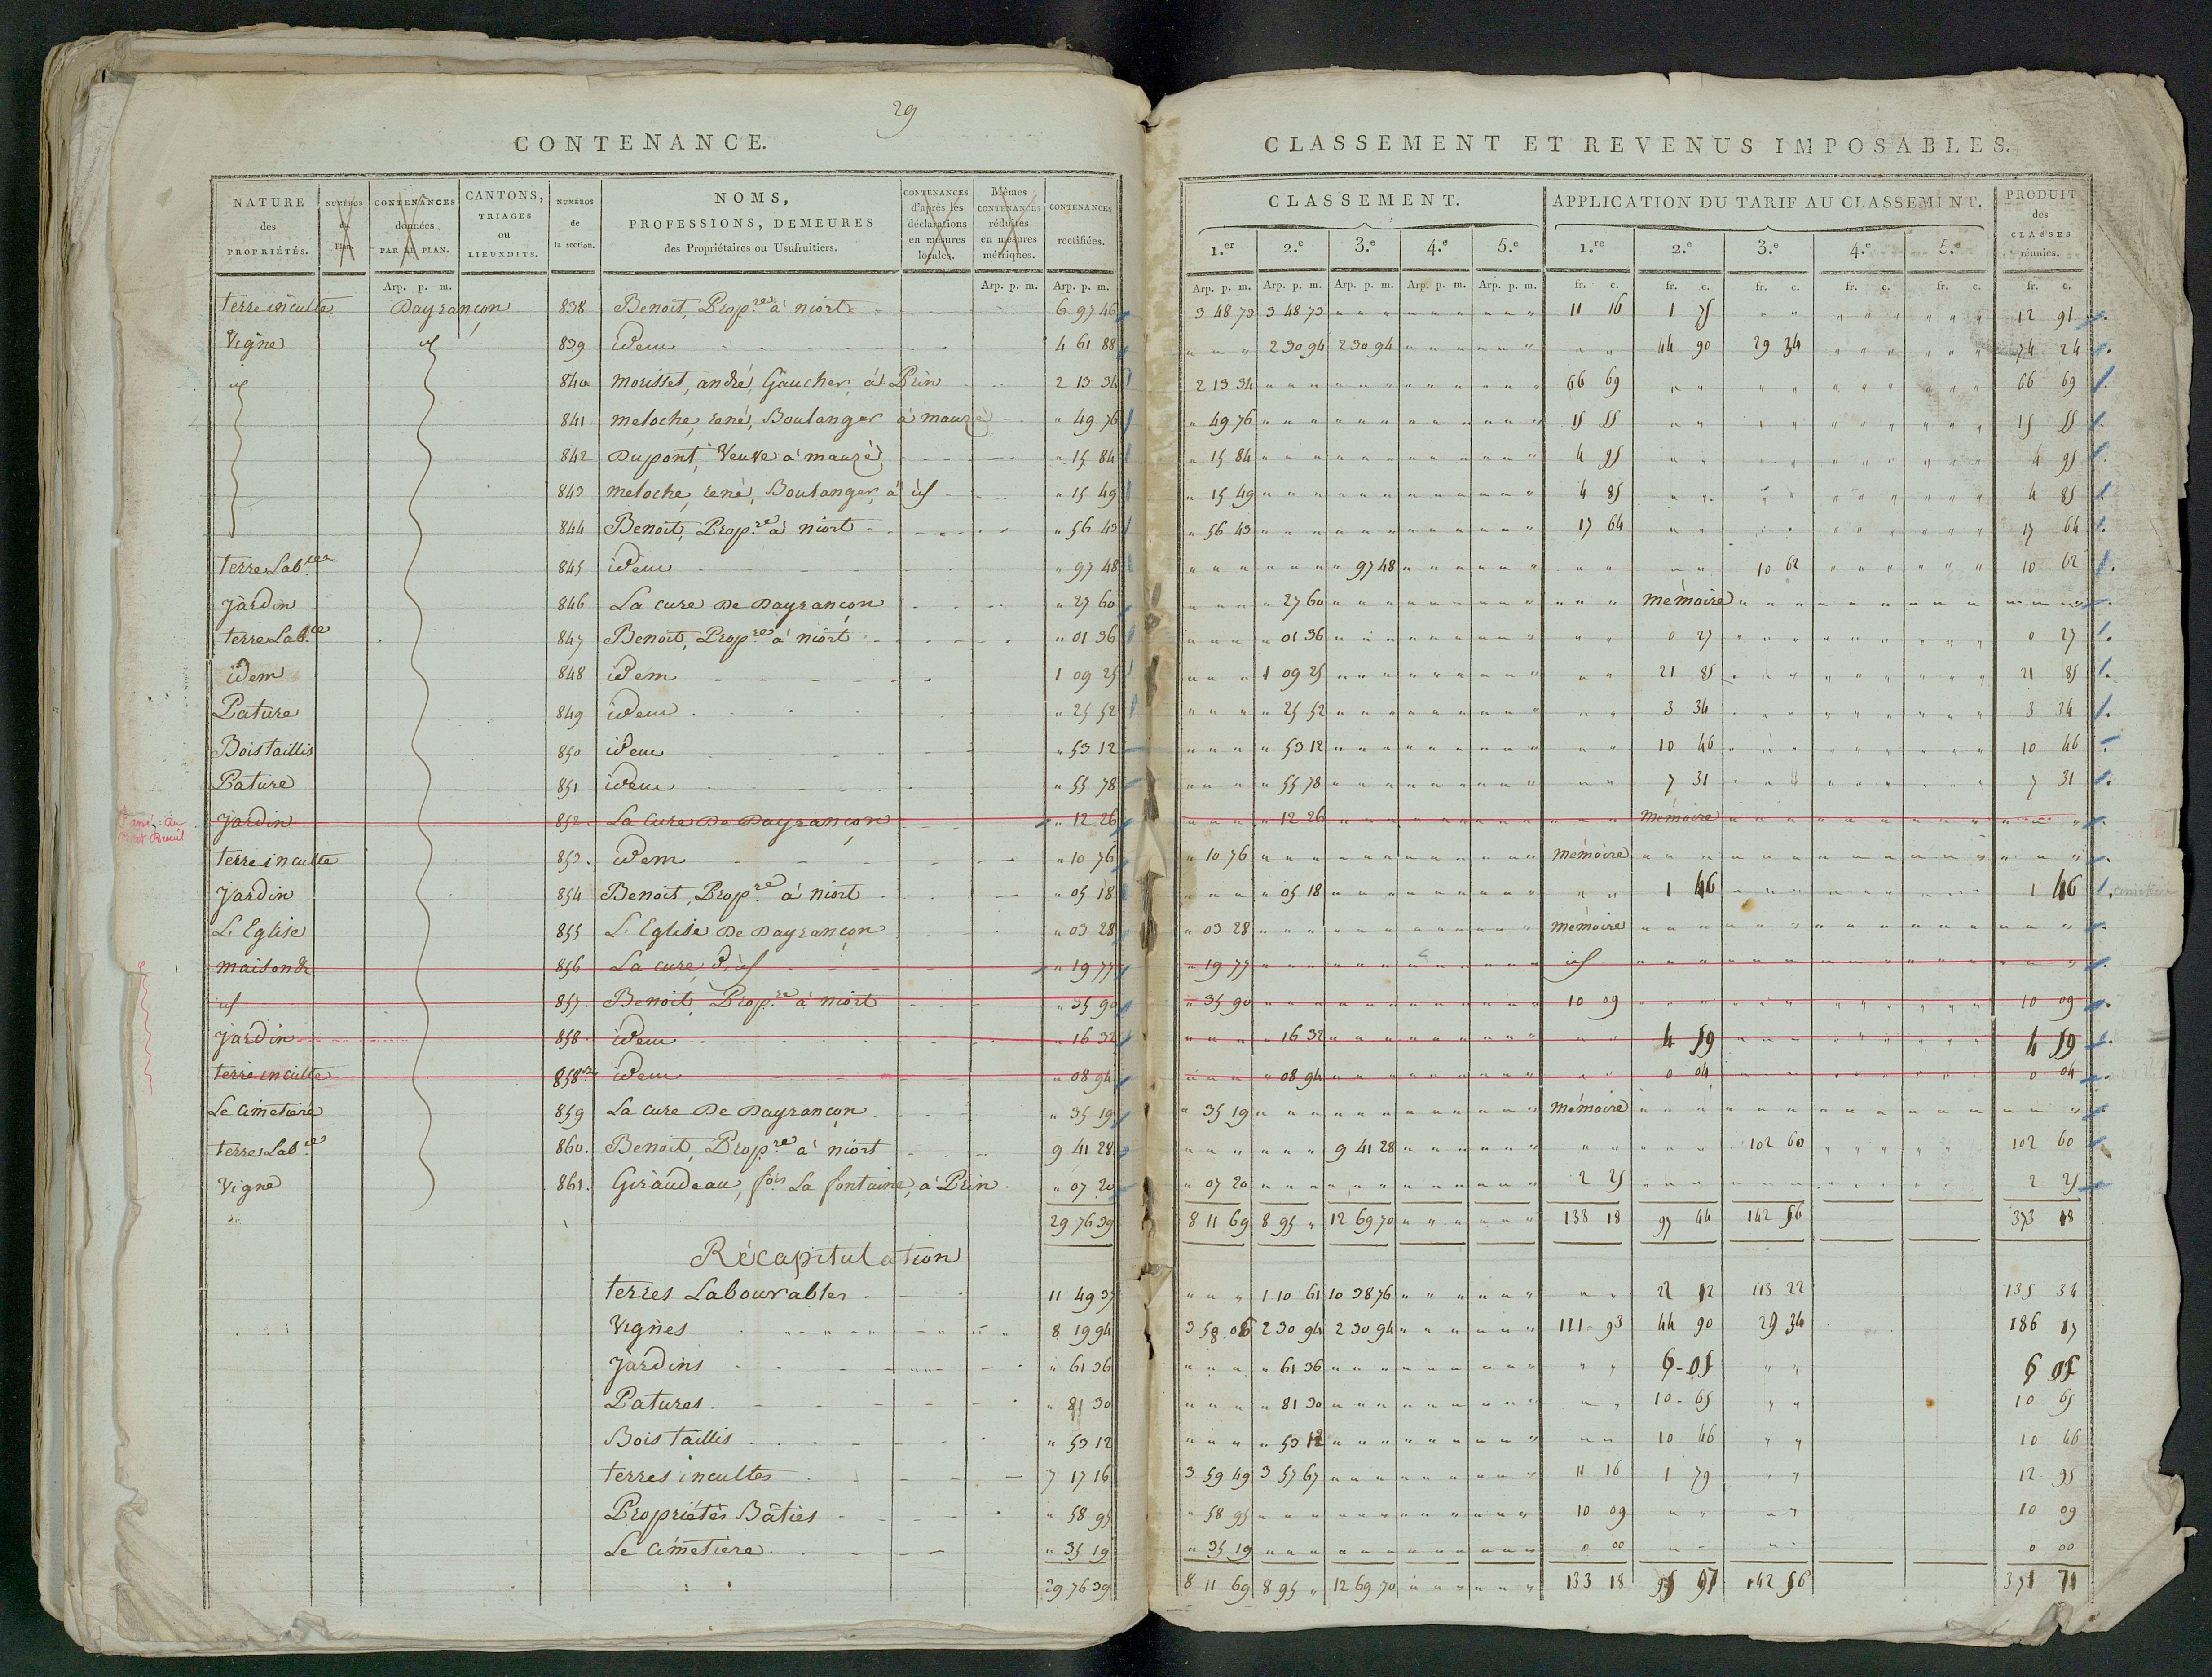 29
CONTENANCE.
NATURE des PROPRIÉTÉS. | NUMÉROS du Plan. | CONTENANCES données PAR LE PLAN. | CANTONS, TRIAGES OU LIEUXDITS. | NUMÉROS de la section. | NOMS, PROFESSIONS, DEMEURES des Propriétaires ou Usufruitiers. | CONTENANCES d'après les déclarations en mesures locales. | Mêmes CONTENANCES réduites en mesures métriques. | CONTENANCES rectifiées.
Arp. p. m. | Arp. p. m. | Arp. p. m.
terre inculte Dayrançon 838 Benoit, Prop.re à niort 6 97 46
Vigne id 839 idem 4 61 88
id 840 morisset, andré, Gaucher, à Prin 2 13 34
841 meloche, rené, Boulanger à mauzé " 49 76
842 Dupont, Veuve à mauzé " 15 84
843 meloche, rené, Boulanger, à id " 15 49
844 Benoit, Prop.re à niort " 56 43
terre Lab.les 845 idem " 97 48
Jardin 846 La cure De Dayrançon " 27 60
terre Lab.le 847 Benoit, Prop.re à niort " 01 36
idem 848 idem 1 09 25
Pature 849 idem " 25 52
Bois taillis 850 idem " 53 12
Pature 851 idem " 55 78
Jardin 852. La Cure De Dayrançon " 12 26
terre inculte 853. idem " 10 76
Jardin 854 Benoit, Prop.re à niort " 05 18
L'Eglise 855 L'Eglise De Dayrançon " 03 28
maison & 856 La cure d'id " 19 77
id 857. Benoit, Prop.re à niort " 35 90
Jardin 858. idem " 16 32
terre inculte 858 bis idem " 08 94
Le Cimetiere 859 La cure De Dayrançon " 35 19
terre Lab.le 860. Benoit, Prop.re à niort 9 41 28
Vigne 861. Giraudeau, fois La fontaine, à Prin " 07 20
29 76 39
Récapitulation
terres Labourables 11 49 37
Vignes 8 19 94
Jardins " 61 36
Patures " 81 30
Bois taillis " 53 12
terres incultes 7 17 16
Propriétés Bâties " 58 95
Le Cimetiere " 35 19
29 76 39
CLASSEMENT ET REVENUS IMPOSABLES.
CLASSEMENT. | APPLICATION DU TARIF AU CLASSEMENT. | PRODUIT des CLASSES réunies.
1.er | 2.e | 3.e | 4.e | 5.e | 1.re | 2.e | 3.e | 4.e | 5.e
Arp. p. m. | Arp. p. m. | Arp. p. m. | Arp. p. m. | Arp. p. m. | fr. c. | fr. c. | fr. c. | fr. c. | fr. c. | fr. c.
3 48 73 3 48 73 11 16 1 75 12 91
2 30 94 2 30 94 44 90 29 34 74 24
2 13 34 66 69 66 69
" 49 76 15 55 15 55
" 15 84 4 95 4 95
" 15 49 4 85 4 85
" 56 43 17 64 17 64
" 97 48 10 62 10 62
" 27 60 mémoire
" 01 36 0 27 0 27
1 09 25 21 85 21 85
" 25 52 3 34 3 34
" 53 12 10 46 10 46
" 55 78 7 31 7 31
" 12 26 mémoire
" 10 76 mémoire
" 05 18 1 46 1 46
" 03 28 mémoire
" 19 77 id
" 35 90 10 09 10 09
" 16 32 4 59 4 59
" 08 94 0 04 0 04
" 35 19 mémoire
9 41 28 102 60 102 60
" 07 20 2 25 2 25
8 11 69 8 95 " 12 69 70 133 18 97 44 142 56 373 18
1 10 61 10 38 76 22 12 113 22 135 34
3 58 06 2 30 94 2 30 94 111 93 44 90 29 34 186 17
" 61 36 6 05 6 05
" 81 30 10 65 10 65
" 53 12 10 46 10 46
3 59 49 3 57 67 11 16 1 79 12 95
" 58 95 10 09 10 09
" 35 19 0 00 0 00
8 11 69 8 95 " 12 69 70 133 18 95 97 142 56 371 71